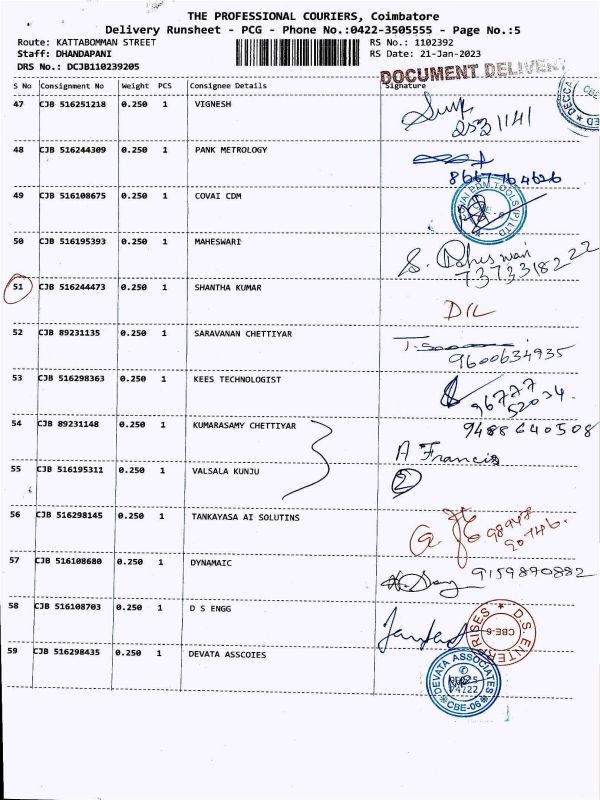 THE PROFESSIONAL COURIERS, Coimbatore
Delivery Runsheet - PCG - Phone No.:0422-3505555 - Page No.:5
Route: KATTABOMMAN STREET RS No.: 1102392
Staff: DHANDAPANI RS Date: 21-Jan-2023
DRS No.: DCJB110239205
DOCUMENT DELIVER
S No Consignment No Weight PCS Consignee Details Signature
47 CJB 516251218 0.250 1 VIGNESH
2531141
48 CJB 516244309 0.250 1 PANK METROLOGY
8667764626
49 CJB 516108675 0.250 1 COVAI CDM
50 CJB 516195393 0.250 1 MAHESWARI
7373318222
51 CJB 516244473 0.250 1 SHANTHA KUMAR D/L
52 CJB 89231135 0.250 1 SARAVANAN CHETTIYAR
9600634935
53 CJB 516298363 0.250 1 KEES TECHNOLOGIST
96777
52034.
54 CJB 89231148 0.250 1 KUMARASAMY CHETTIYAR 9488640508
A Francis
55 CJB 516195311 0.250 1 VALSALA KUNJU 2
56 CJB 516298145 0.250 1 TANKAYASA AI SOLUTINS
98948
90746.
57 CJB 516108680 0.250 1 DYNAMAIC
9159890882
58 CJB 516108703 0.250 1 D S ENGG
D.S. ENTERPRISES
CBE-6
59 CJB 516298435 0.250 1 DEVATA ASSCOIES
DEVATA ASSOCIATES
CBE-06